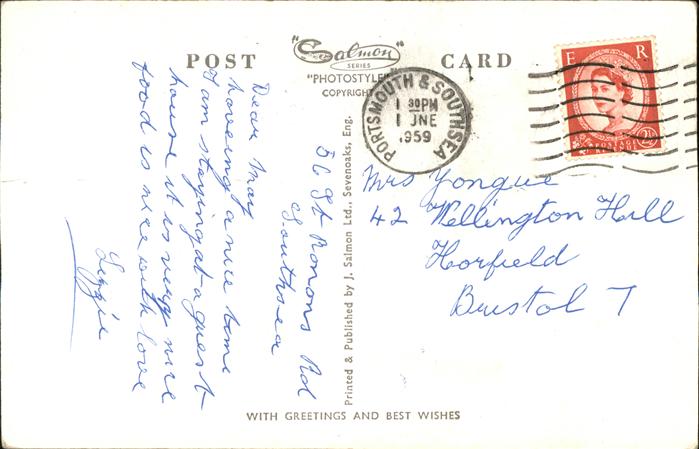 POST "Salmon" CARD
SERIES
"PHOTOSTYLE"
COPYRIGHT
E R
POSTAGE
REVENUE
2½
PORTSMOUTH & SOUTHSEA
1 30PM
1 JNE
1959
56 St Ronons Rd
Southsea
Dear May
having a nice time
I am staying at a guest
house it is very nice
food is nice with love
Lizzie
Mrs Yongue
42 Wellington Hill
Horfield
Bristol 7
Printed & Published by J. Salmon Ltd., Sevenoaks, Eng.
WITH GREETINGS AND BEST WISHES